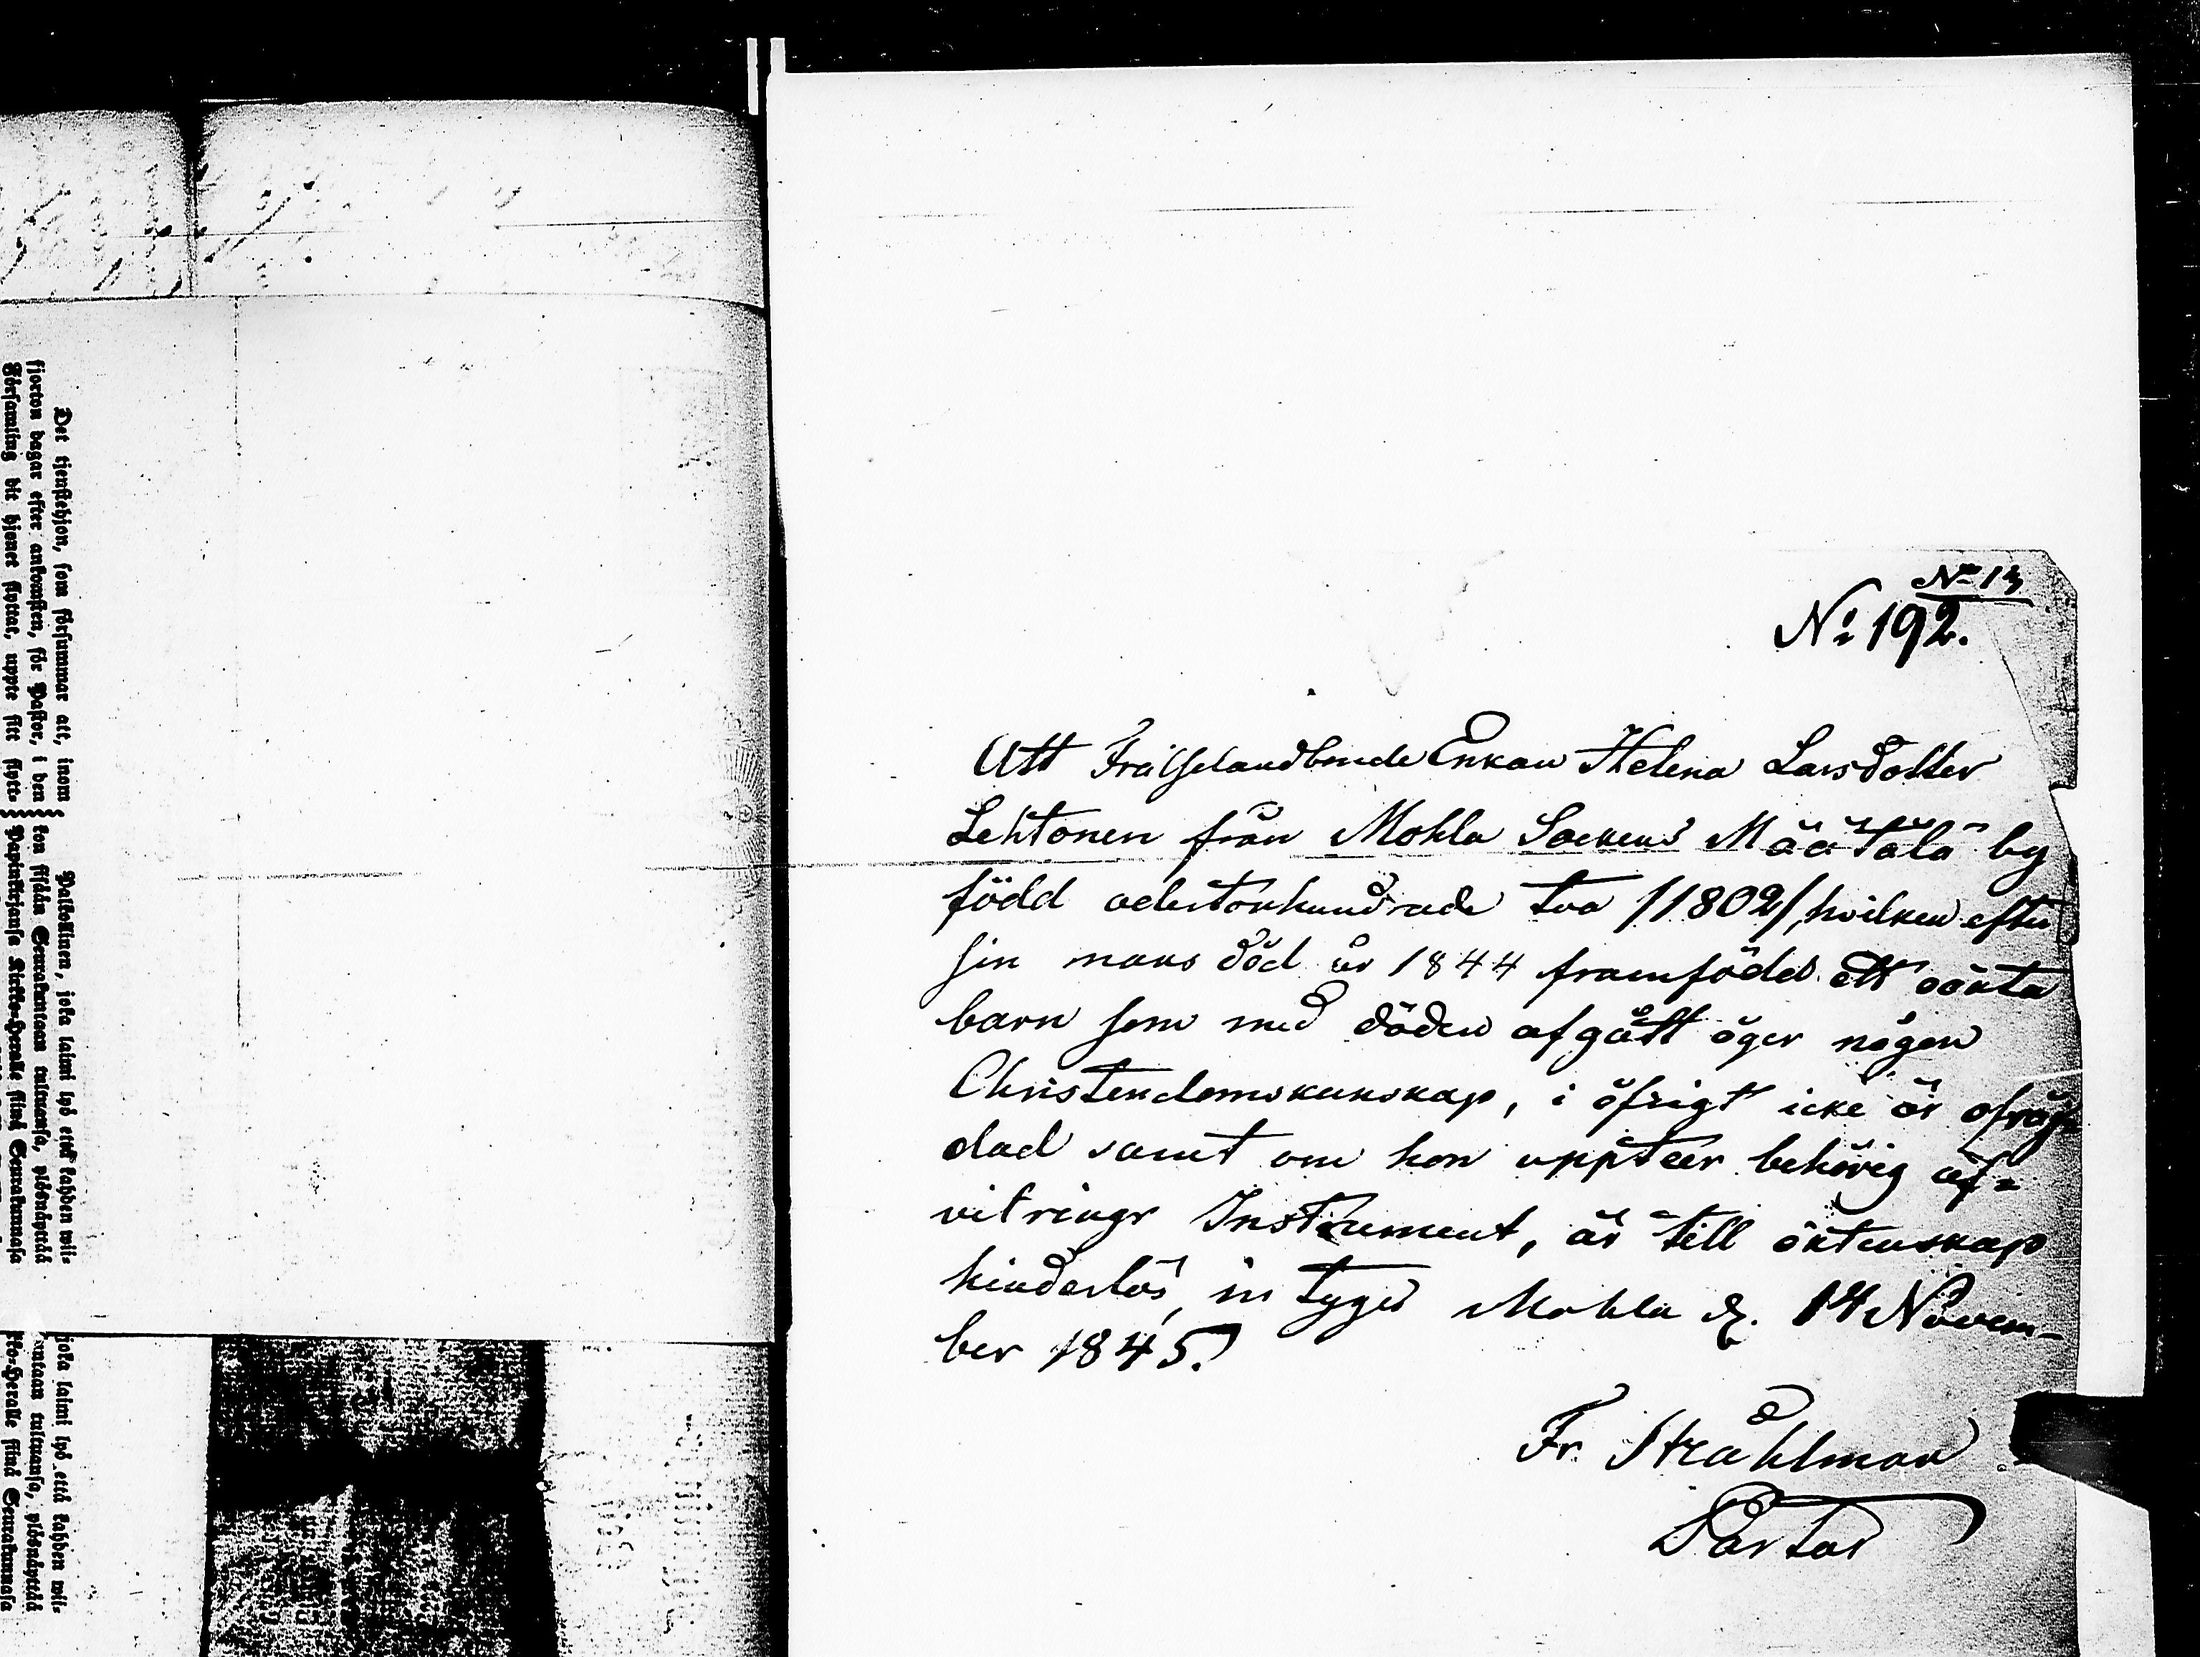 Det tjenstehjon, som försummar att, inom
fjorton dagar efter ankomsten, för Pastor, i den
Församling dit hjonet flyttat, uppte sitt flytt-
Palkollinen, joka laimi lyö että kahden wii-
kon sisään Seurakuntaan tultuansa, ylösnäyttää
Papinkirjansa Kirkko-Herralle siinä Seurakunnasa
joka laimi lyö että kahden wii-
kuntaan tultuansa, ylösnäyttää
kko-Herralle siinä Seurakunnasa
No 13
No 192.
Att Frälselandbonde Enkan Helena Larsdotter
Lehtonen från Mohla Sockens Määtälä by
född adertonhundrade två /1802/, hvilken efter
sin mans död år 1844 framfödd ett oäkta
barn som med döden afgått äger någon
Christendomskunskap, i öfrigt icke är ofräj-
dad samt om hon uppteer behörig af-
vitrings Instrument, är till äktenskap
hinderlös, intygas Mohla d. 14 Novem-
ber 1845.
Fr. Stråhlman
Pastor